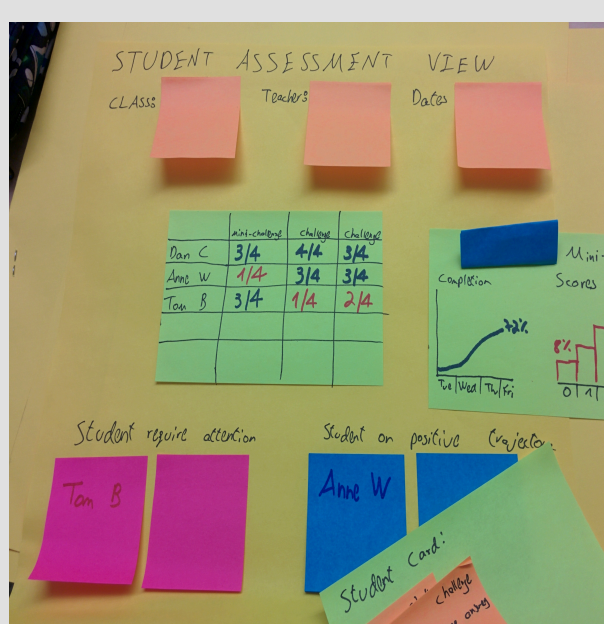 STUDENT ASSESSMENT VIEW
CLASS: Teacher: Dates
Mini-challenge Challenge Challenge
Dan C 3/4 4/4 3/4
Anne W 1/4 3/4 3/4
Tom B 3/4 1/4 2/4
Mini-
Completion Scores
72%
8%
Tue Wed Thu Fri
0 1
Student require attention
Student on positive
Tom B
Anne W
Student Card:
Challenge